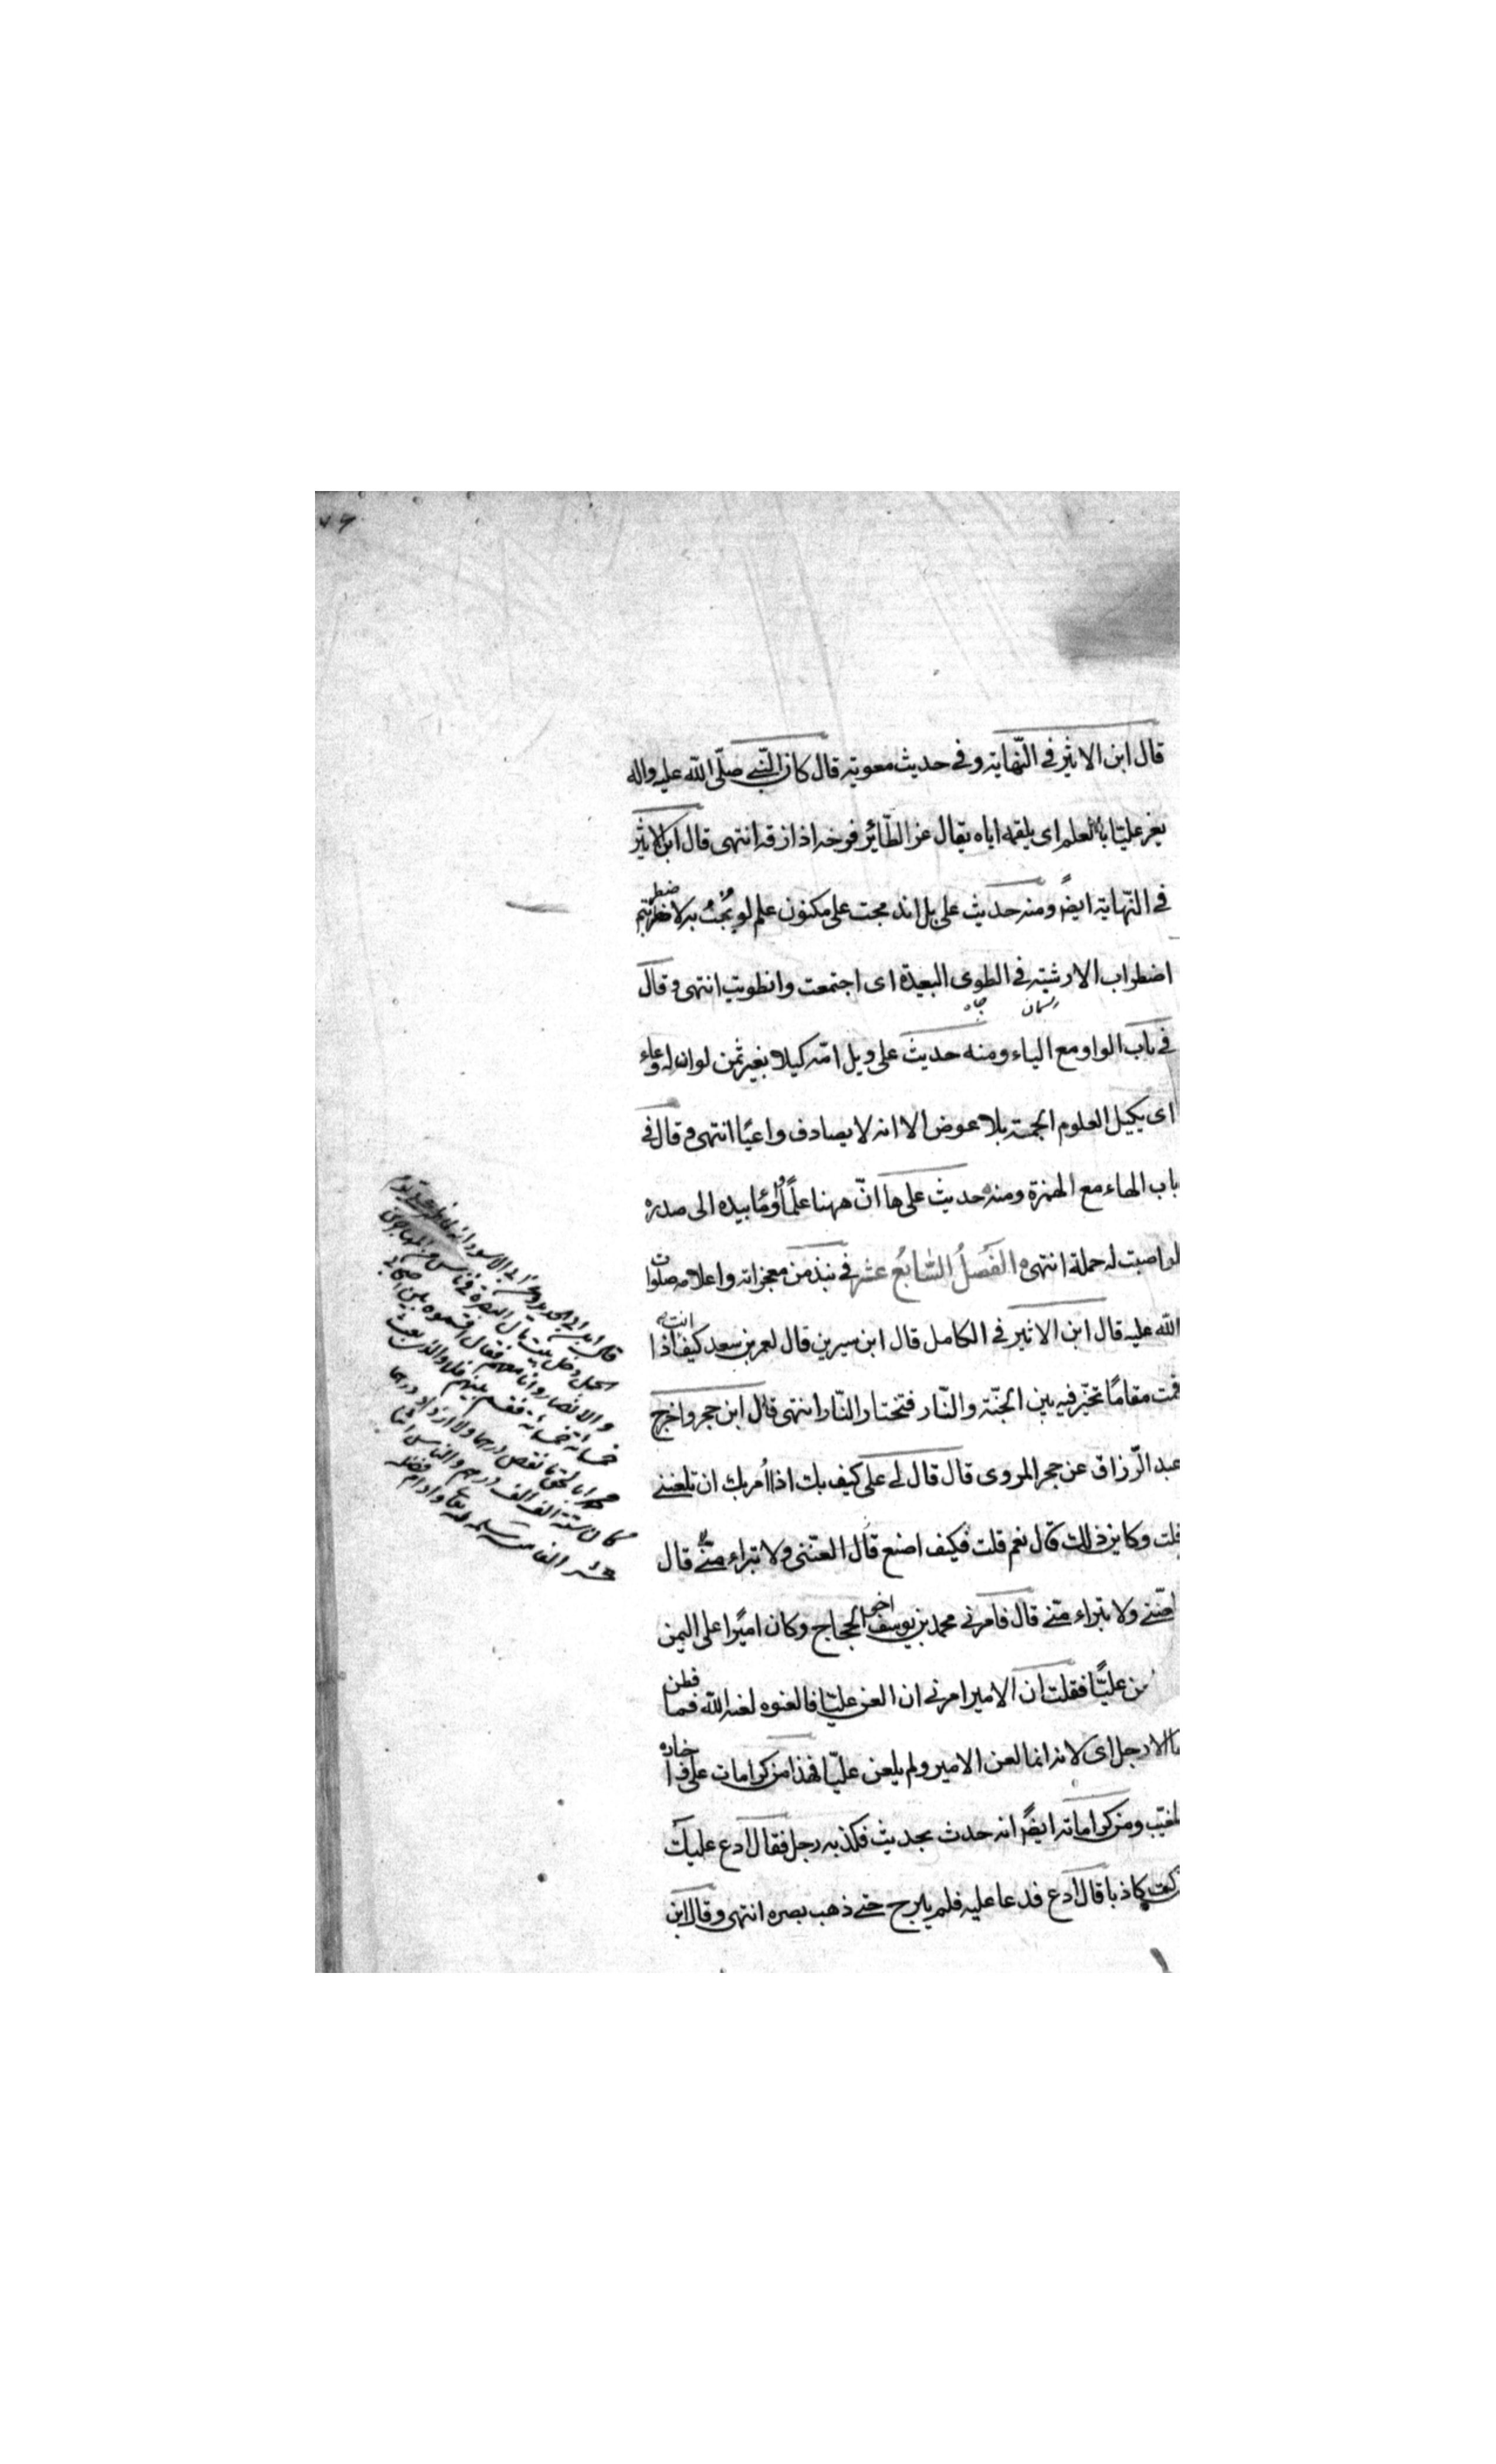 ٧٦
قال ابن الاثير فى النّهاية وفى حديث معوية قال كان النّبى صلّى الله عليه واله
يغر عليّا بالعلم اى يلقمه اياه يقال غر الطّائر فرخه اذا زقه انتهى قال ابن الاثير
فى النّهاية ايضً ومنه حديث على بل اندمجت على مكنون علم لو بُحْتُ به لاضطربتم
اضطراب الارشية فى الطوى البعيدة اى اجتمعت وانطويت انتهى وقال
ريسمان چاه
فى باب الواو مع الياء ومنه حديث على ويل امّه كيلا بغير ثمن لو ان له وعاء
اى يكيل العلوم الجمّة بلا عوض الا انه لا يصادف واعيًا انتهى وقال فى
باب الهاء مع الهمزة ومنه حديث على ها انّ ههنا علمًا واومًا بيده الى صدره
لو اصبت له حملة انتهى الفَصلُ السّابعُ عشر فى نبذ من معجزاته واعلامه صلوات
الله عليه قال ابن الاثير فى الكامل قال ابن سيرين قال لعمر بن سعد كيف انت اذا
قمت مقامًا تخيّر فيه بين الجنّة والنّار فتختار النّار انتهى قال ابن حجر واخرج
عبد الرّزاق عن حجر المروى قال قال لى على كيف بك اذا اُمر بك ان تلعننى
قلت وكاين ذلك قال نعم قلت فكيف اصنع قال العننى ولا تبراء منّى قال
ولا تبراء منّى قال فامرنى محمد بن يوسف اخى الحجاج وكان اميرًا على اليمن
عليًّا فقلت ان الامير امرنى ان العن عليّا فالعنوه لعنه الله فما فطن
الا رجل اى لانه انما لعن الامير ولم يلعن عليّا فهذا من كرامات على
ومن كراماته ايضً انه حدث بحديث فكذبه رجل فقال ادع عليك
كنت كاذبا قال ادع فدعا عليه فلم يبرح حتى ذهب بصره انتهى وقال ابن
الجمل دخل بيت مال البصرة فى ناس من المهاجرين
والانصار وانا معهم فقال اقسموه بين اصحابى
خمسمائة خمسمائة فقسم بينهم فلا والذى بعث
محمدا بالحق ما نقص درهما ولا ازداد درهما
كان ستة الف الف درهم والناس اثنا
عشر الفا